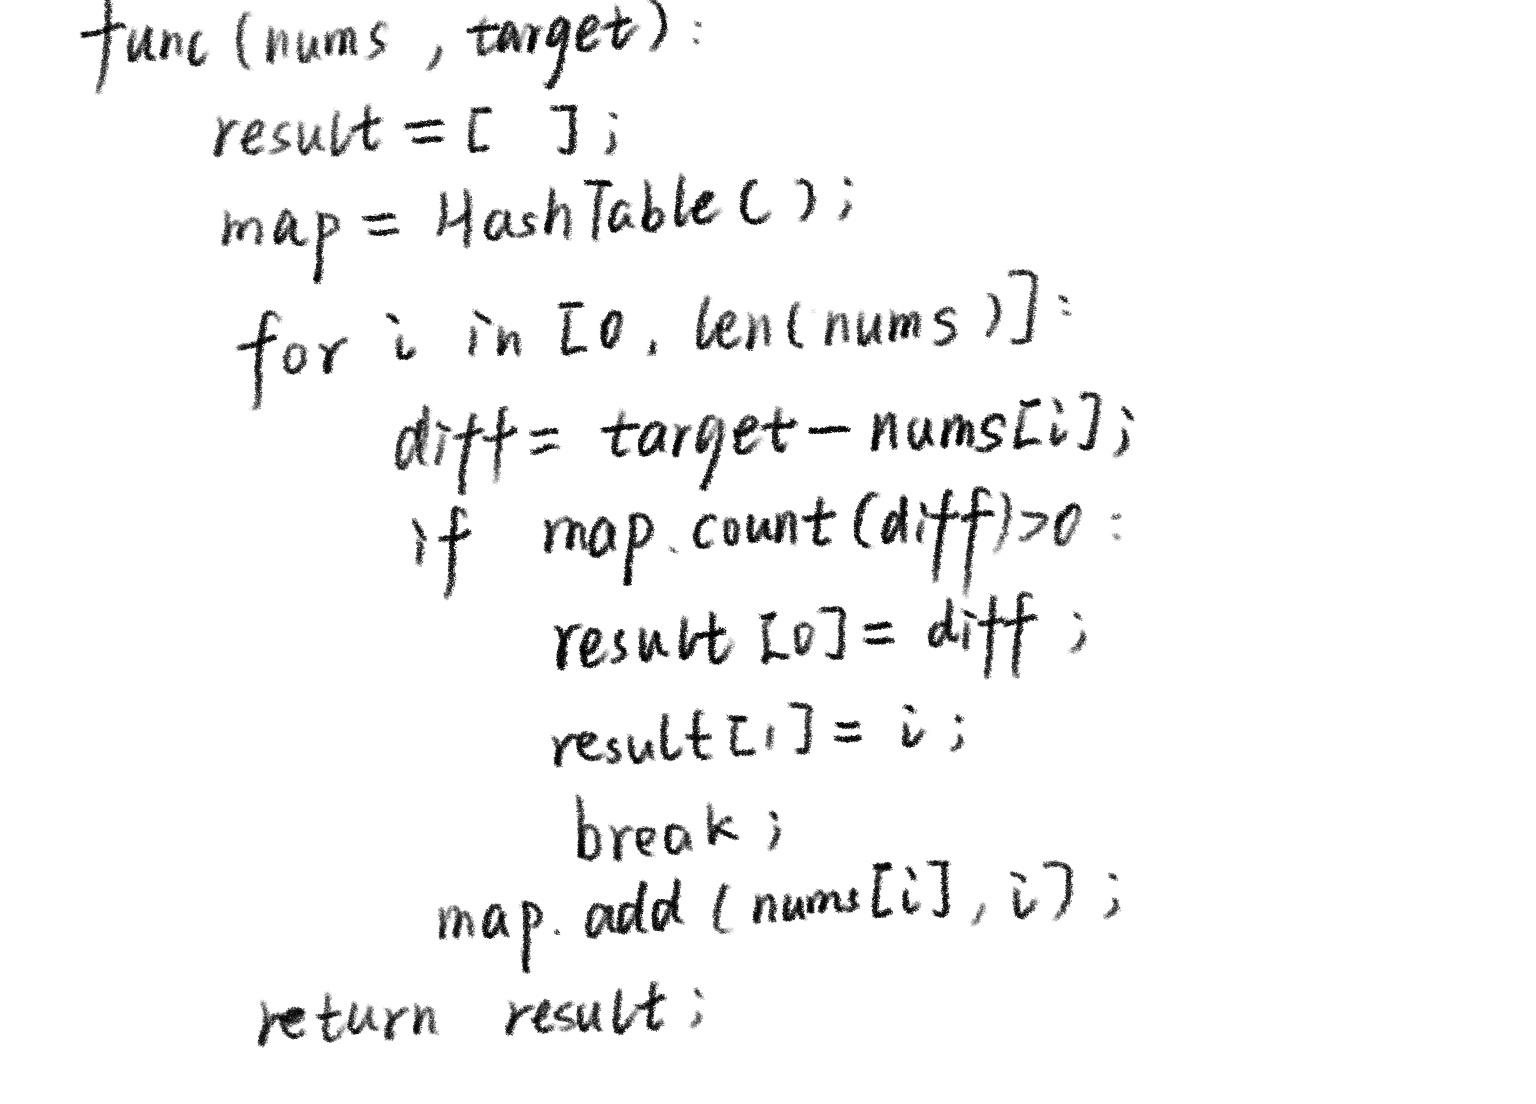 func (nums , target) :
result = [ ] ;
map = HashTable ( ) ;
for i in [0, len(nums)] :
diff = target - nums[i] ;
if map.count(diff)>0 :
result [0] = diff ;
result[1] = i ;
break ;
map.add (nums[i], i) ;
return result ;